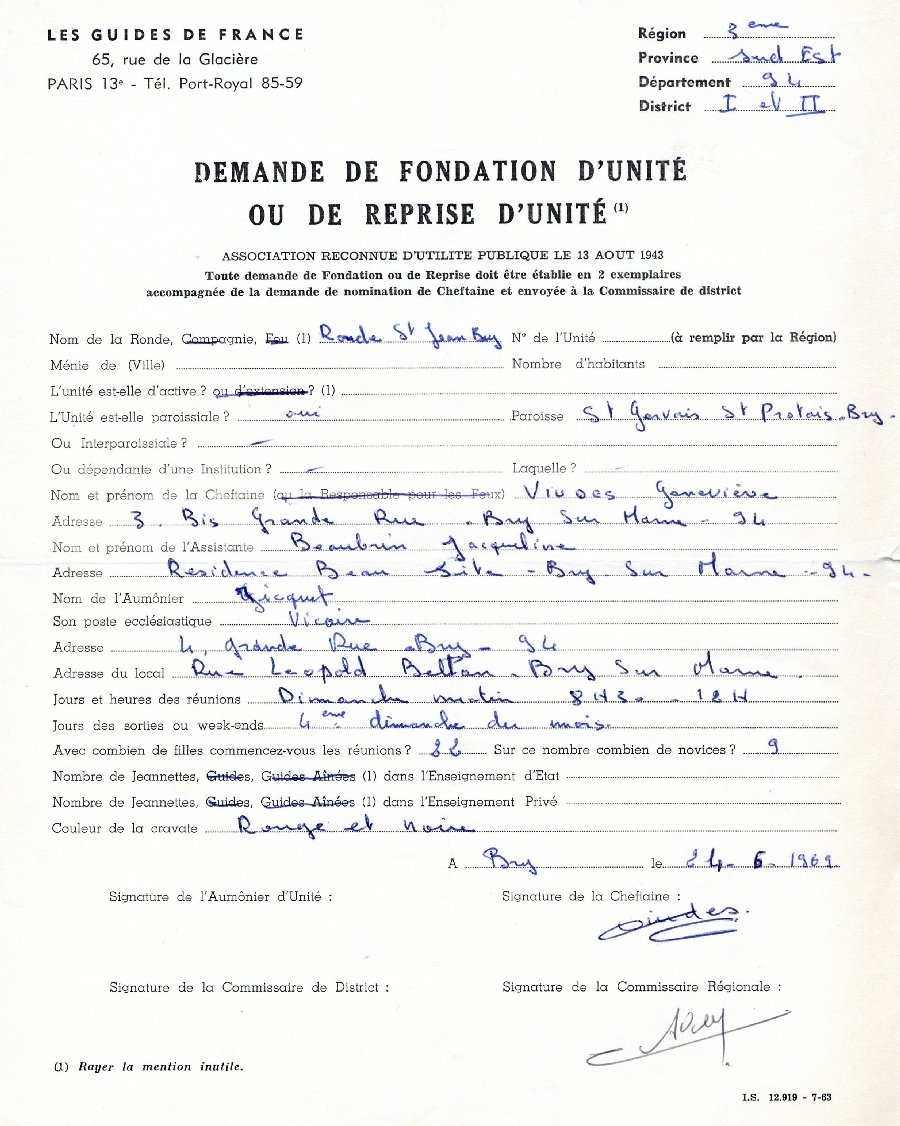 LES GUIDES DE FRANCE
65, rue de la Glacière
PARIS 13e - Tél. Port-Royal 85-59
Région 3 eme
Province Sud Est
Département 94
District I et II
DEMANDE DE FONDATION D'UNITÉ
OU DE REPRISE D'UNITÉ (1)
ASSOCIATION RECONNUE D'UTILITE PUBLIQUE LE 13 AOUT 1943
Toute demande de Fondation ou de Reprise doit être établie en 2 exemplaires
accompagnée de la demande de nomination de Cheftaine et envoyée à la Commissaire de district
Nom de la Ronde, Compagnie, Feu (1) Ronde St Jean Bry N° de l'Unité (à remplir par la Région)
Ménie de (Ville) Nombre d'habitants
L'unité est-elle d'active ? ou d'extension ? (1)
L'Unité est-elle paroissiale ? oui Paroisse St Gervais St Protais - Bry -
Ou Interparoissiale ? -
Ou dépendante d'une Institution ? - Laquelle ? -
Nom et prénom de la Cheftaine (ou la Responsable pour les Feux) Viudes Geneviève
Adresse 3 Bis Grande Rue - Bry Sur Marne - 94
Nom et prénom de l'Assistante Beaubrun Jacqueline
Adresse Residence Beau Site - Bry Sur Marne - 94 -
Nom de l'Aumônier Gicquet
Son poste ecclésiastique Vicaire
Adresse 4, grande Rue - Bry - 94
Adresse du local Rue Leopold Bellan - Bry Sur Marne.
Jours et heures des réunions Dimanche matin 8H30 - 12H
Jours des sorties ou week-ends 4 eme dimanche du mois.
Avec combien de filles commencez-vous les réunions ? 22 Sur ce nombre combien de novices ? 9
Nombre de Jeannettes, Guides, Guides Aînées (1) dans l'Enseignement d'Etat
Nombre de Jeannettes, Guides, Guides Aînées (1) dans l'Enseignement Privé
Couleur de la cravate Rouge et noire
A Bry le 24 - 6 - 1969
Signature de l'Aumônier d'Unité :
Signature de la Cheftaine :
Viudes.
Signature de la Commissaire de District :
Signature de la Commissaire Régionale :
(1) Rayer la mention inutile.
I.S. 12.919 - 7-63